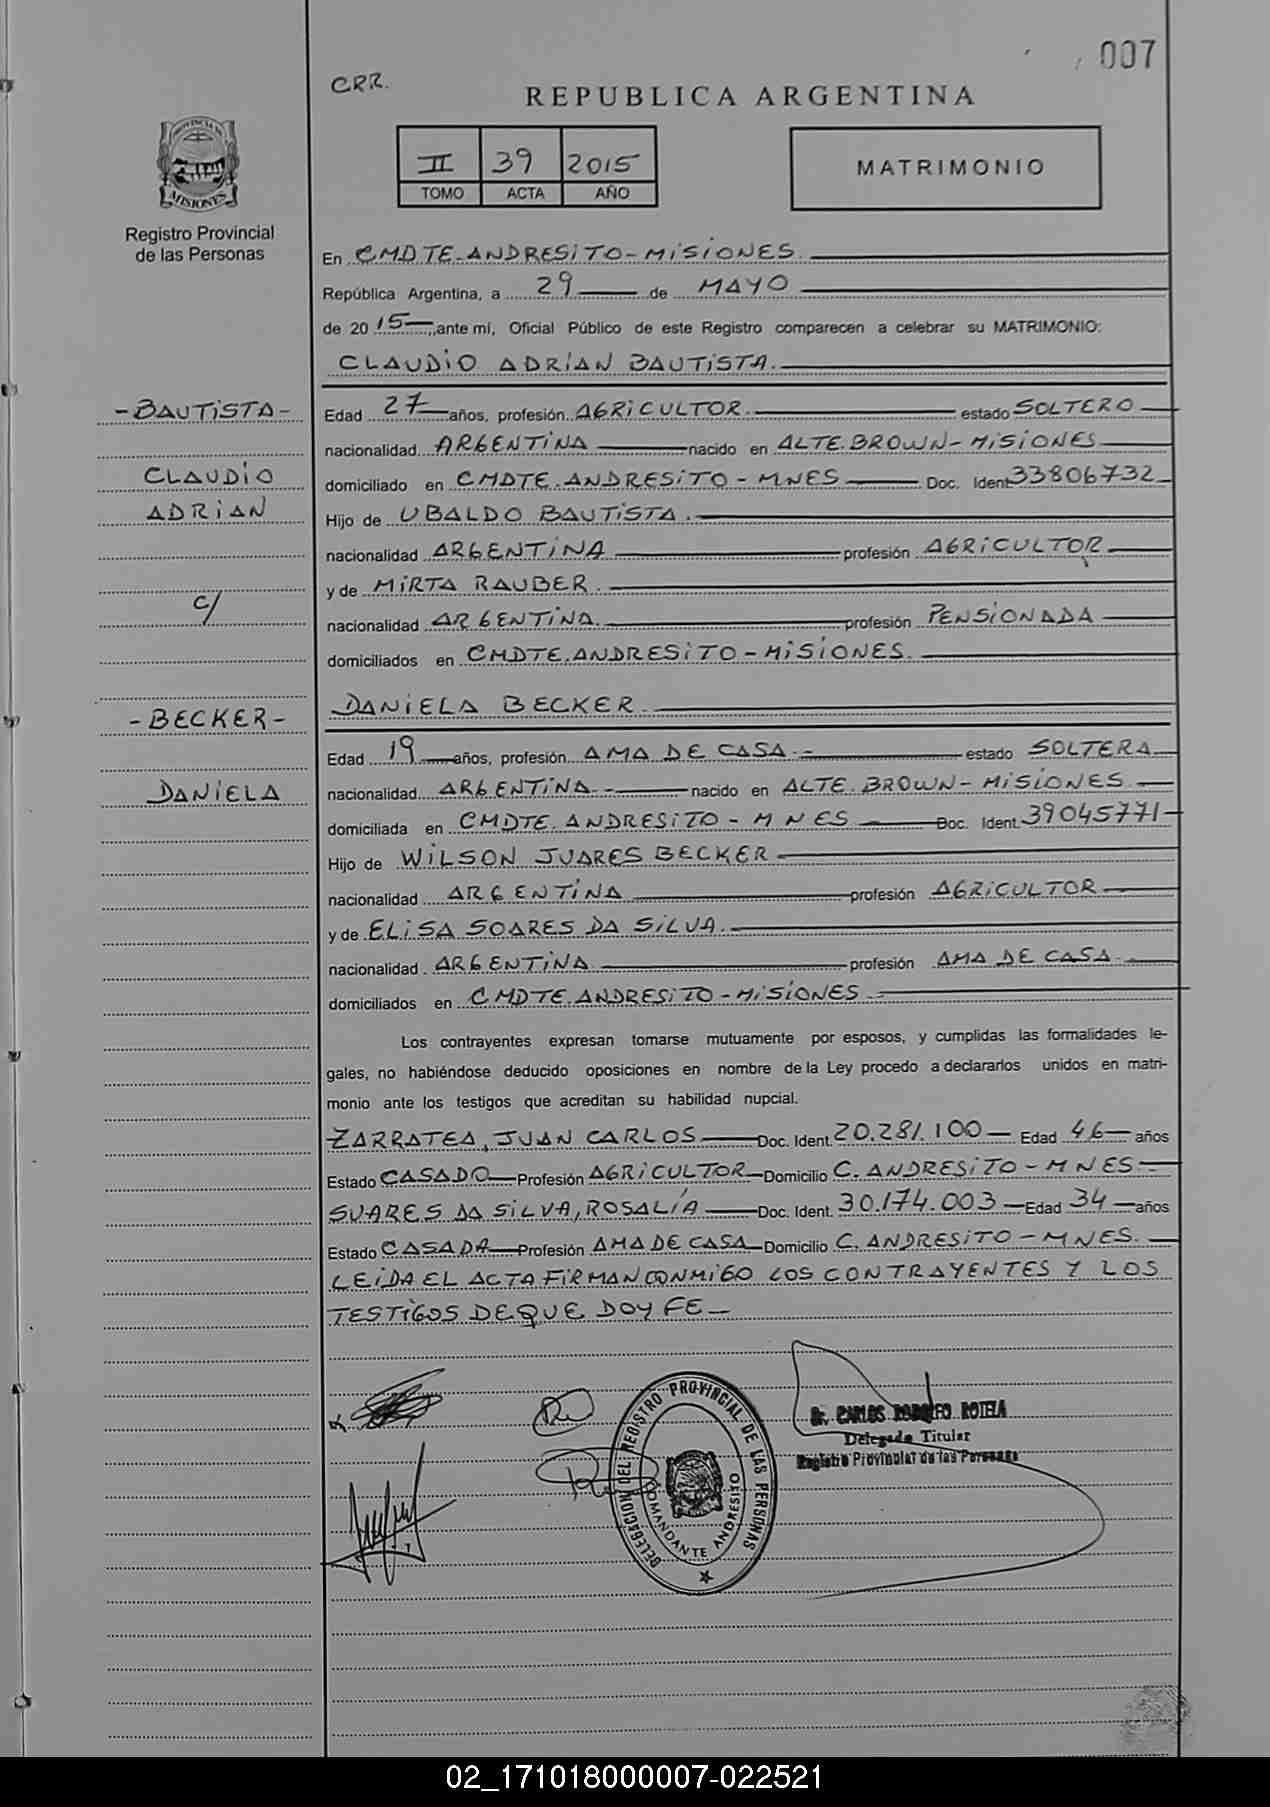 007
CRR.
REPUBLICA ARGENTINA
II 39 2015
TOMO ACTA AÑO
MATRIMONIO
PROVINCIA DE
MISIONES
Registro Provincial
de las Personas
En CMDTE. ANDRESITO - MISIONES.
República Argentina, a 29 de MAYO
de 2015, ante mí, Oficial Público de este Registro comparecen a celebrar su MATRIMONIO:
CLAUDIO ADRIAN BAUTISTA.
- BAUTISTA -
Edad 27 años, profesión AGRICULTOR. estado SOLTERO
nacionalidad ARGENTINA nacido en ALTE. BROWN - MISIONES
CLAUDIO
domiciliado en CMDTE. ANDRESITO - MNES Doc. Ident. 33806732
ADRIAN
Hijo de UBALDO BAUTISTA.
nacionalidad ARGENTINA profesión AGRICULTOR
y de MIRTA RAUBER.
C/
nacionalidad ARGENTINA. profesión PENSIONADA
domiciliados en CMDTE. ANDRESITO - MISIONES.
- BECKER -
DANIELA BECKER.
Edad 19 años, profesión AMA DE CASA. estado SOLTERA
DANIELA
nacionalidad ARGENTINA. nacido en ALTE. BROWN - MISIONES.
domiciliada en CMDTE. ANDRESITO - MNES Doc. Ident. 39045771
Hijo de WILSON JUARES BECKER
nacionalidad ARGENTINA profesión AGRICULTOR
y de ELISA SOARES DA SILVA.
nacionalidad ARGENTINA profesión AMA DE CASA.
domiciliados en CMDTE. ANDRESITO - MISIONES.
Los contrayentes expresan tomarse mutuamente por esposos, y cumplidas las formalidades le-
gales, no habiéndose deducido oposiciones en nombre de la Ley procedo a declararlos unidos en matri-
monio ante los testigos que acreditan su habilidad nupcial.
ZARRATEA, JUAN CARLOS Doc. Ident. 20.281.100 Edad 46 años
Estado CASADO Profesión AGRICULTOR Domicilio C. ANDRESITO - MNES
SUARES DA SILVA, ROSALÍA Doc. Ident. 30.174.003 Edad 34 años
Estado CASADA Profesión AMA DE CASA Domicilio C. ANDRESITO - MNES.
LEIDA EL ACTA FIRMAN CONMIGO LOS CONTRAYENTES Y LOS
TESTIGOS DE QUE DOY FE
DELEGACION DEL REGISTRO PROVINCIAL DE LAS PERSONAS
COMANDANTE ANDRESITO
Dr. CARLOS RODOLFO ROTELA
Delegado Titular
Registro Provincial de las Personas
02_171018000007-022521